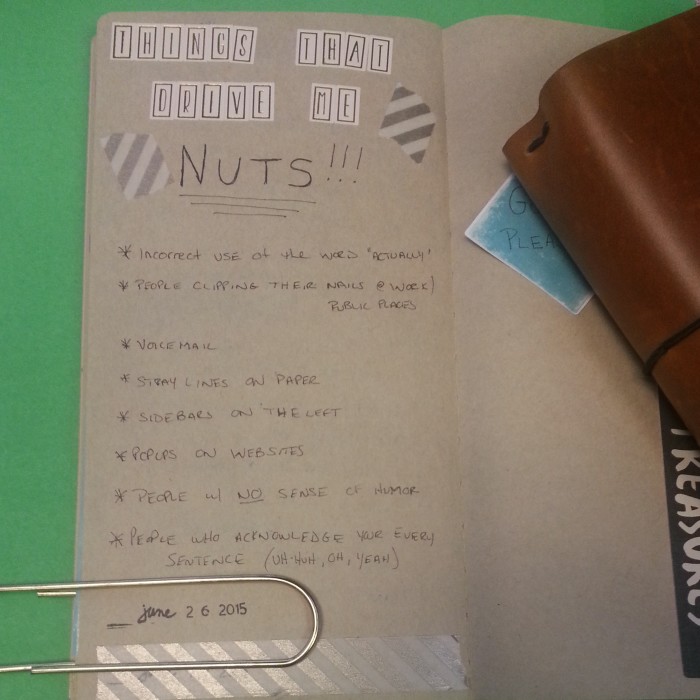 THINGS THAT
DRIVE ME
NUTS!!!
* Incorrect use of the word "ACTUALLY"
* PEOPLE CLIPPING THEIR NAILS @ WORK/
PUBLIC PLACES
* VOICEMAIL
* STRAY LINES ON PAPER
* SIDEBARS ON THE LEFT
* POPUPS ON WEBSITES
* PEOPLE w/ NO SENSE OF HUMOR
* PEOPLE WHO ACKNOWLEDGE YOUR EVERY
SENTENCE (UH-HUH, OH, YEAH)
june 26 2015
TREASURES